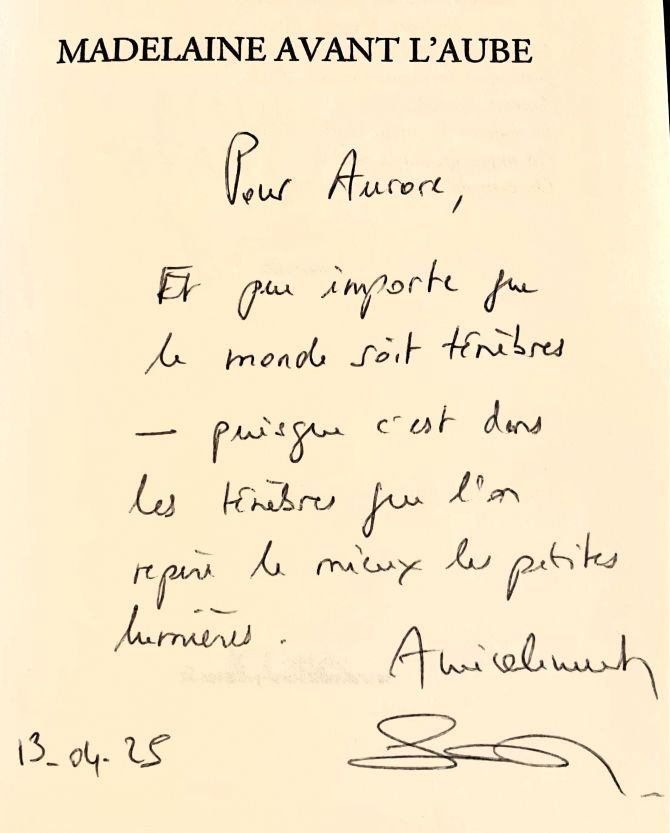 MADELAINE AVANT L'AUBE
Pour Aurore,
Et peu importe que
le monde soit ténèbres
— puisque c'est dans
les ténèbres que l'on
repère le mieux les petites
lumières.
Amicalement
13-04-25